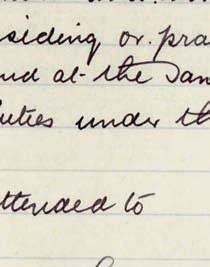 siding or pra
nd at the San
uties under th
ttended to